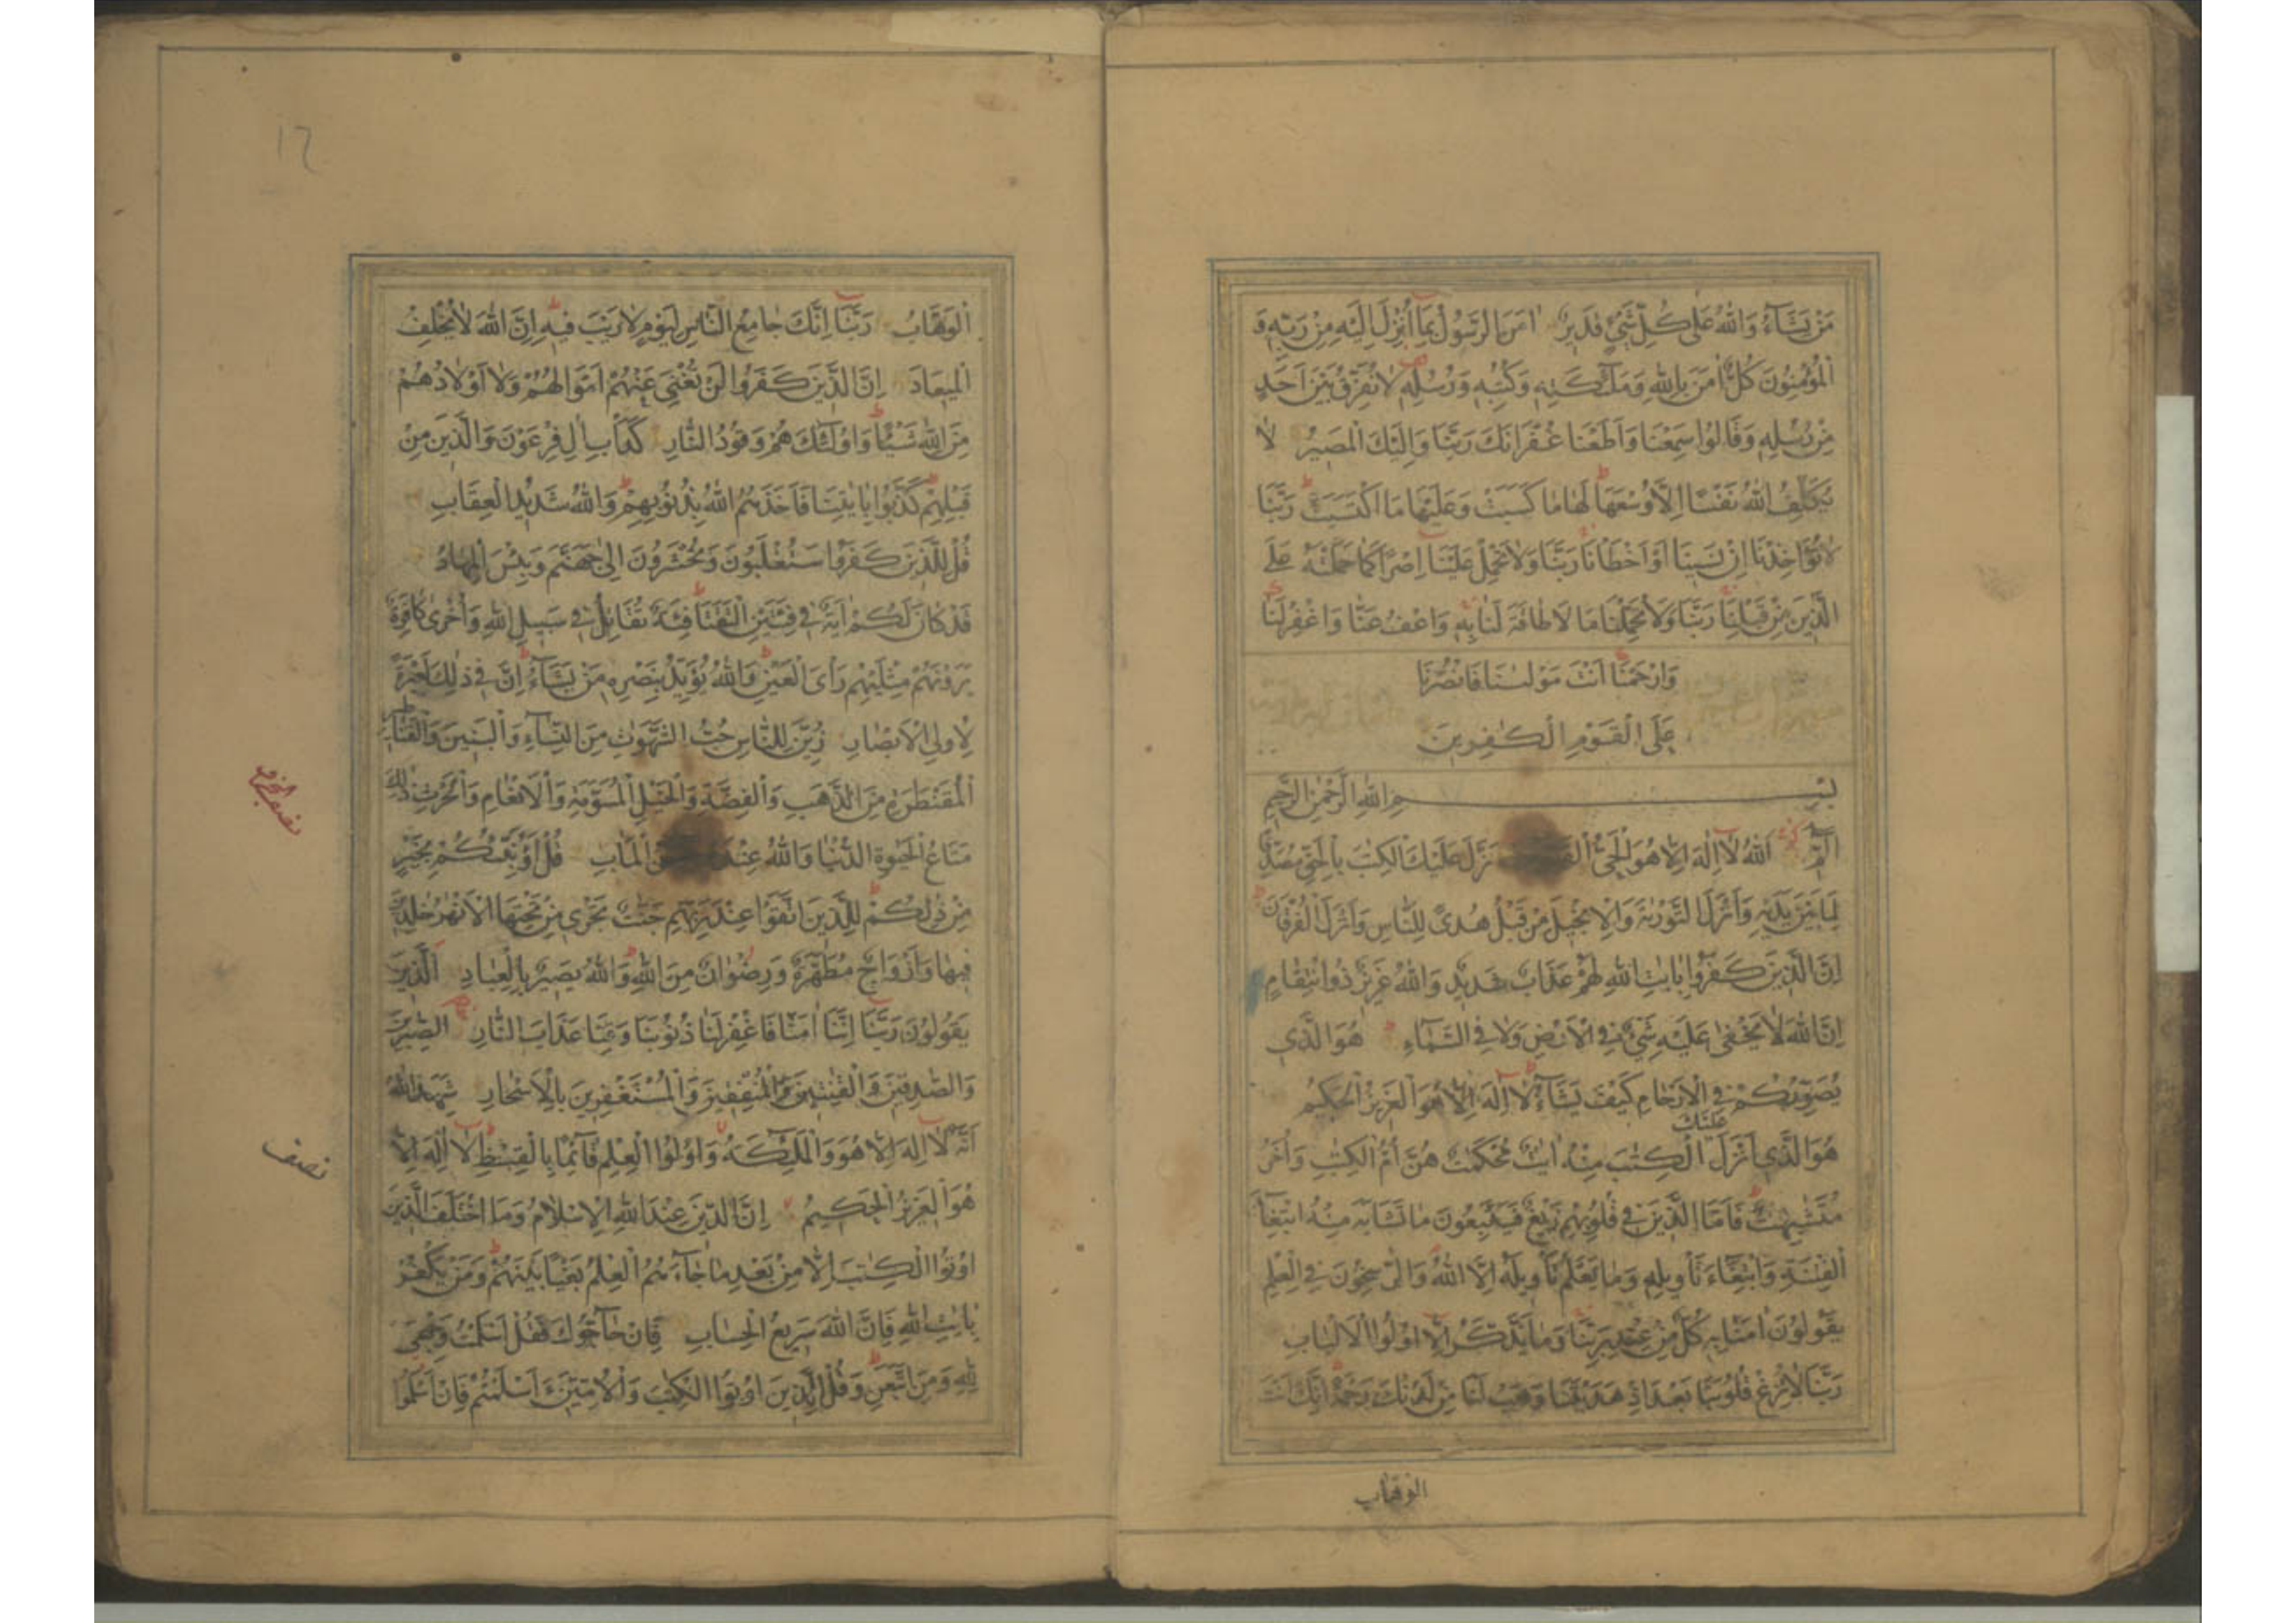 مَنْ يَشَآءُ وَاللّٰهُ عَلٰى كُلِّ شَيْءٍ قَدِيرٌ اٰمَنَ الرَّسُولُ بِمَآ اُنْزِلَ اِلَيْهِ مِنْ رَبِّهٖ وَ
الْمُؤْمِنُونَ كُلٌّ اٰمَنَ بِاللّٰهِ وَمَلٰٓئِكَتِهٖ وَكُتُبِهٖ وَرُسُلِهٖ لَا نُفَرِّقُ بَيْنَ اَحَدٍ
مِنْ رُسُلِهٖ وَقَالُوا سَمِعْنَا وَاَطَعْنَا غُفْرَانَكَ رَبَّنَا وَاِلَيْكَ الْمَصِيرُ لَا
يُكَلِّفُ اللّٰهُ نَفْسًا اِلَّا وُسْعَهَا لَهَا مَا كَسَبَتْ وَعَلَيْهَا مَا اكْتَسَبَتْ رَبَّنَا
لَا تُؤَاخِذْنَا اِنْ نَسِينَا اَوْ اَخْطَاْنَا رَبَّنَا وَلَا تَحْمِلْ عَلَيْنَا اِصْرًا كَمَا حَمَلْتَهٗ عَلَى
الَّذِينَ مِنْ قَبْلِنَا رَبَّنَا وَلَا تُحَمِّلْنَا مَا لَا طَاقَةَ لَنَا بِهٖ وَاعْفُ عَنَّا وَاغْفِرْ لَنَا
وَارْحَمْنَا اَنْتَ مَوْلٰىنَا فَانْصُرْنَا
عَلَى الْقَوْمِ الْكٰفِرِينَ
بِسْمِ اللّٰهِ الرَّحْمٰنِ الرَّحِيمِ
الٓمٓ اَللّٰهُ لَآ اِلٰهَ اِلَّا هُوَ الْحَيُّ نَزَّلَ عَلَيْكَ الْكِتٰبَ بِالْحَقِّ مُصَدِّقًا
لِمَا بَيْنَ يَدَيْهِ وَاَنْزَلَ التَّوْرٰىةَ وَالْاِنْجِيلَ مِنْ قَبْلُ هُدًى لِلنَّاسِ وَاَنْزَلَ الْفُرْقَانَ
اِنَّ الَّذِينَ كَفَرُوا بِاٰيٰتِ اللّٰهِ لَهُمْ عَذَابٌ شَدِيدٌ وَاللّٰهُ عَزِيزٌ ذُو انْتِقَامٍ
اِنَّ اللّٰهَ لَا يَخْفٰى عَلَيْهِ شَيْءٌ فِي الْاَرْضِ وَلَا فِي السَّمَآءِ هُوَ الَّذِي
يُصَوِّرُكُمْ فِي الْاَرْحَامِ كَيْفَ يَشَآءُ لَآ اِلٰهَ اِلَّا هُوَ الْعَزِيزُ الْحَكِيمُ
عَلَيْكَ
هُوَ الَّذِي اَنْزَلَ الْكِتٰبَ مِنْهُ اٰيٰتٌ مُحْكَمٰتٌ هُنَّ اُمُّ الْكِتٰبِ وَاُخَرُ
مُتَشٰبِهٰتٌ فَاَمَّا الَّذِينَ فِي قُلُوبِهِمْ زَيْغٌ فَيَتَّبِعُونَ مَا تَشَابَهَ مِنْهُ ابْتِغَآءَ
الْفِتْنَةِ وَابْتِغَآءَ تَاْوِيلِهٖ وَمَا يَعْلَمُ تَاْوِيلَهٗ اِلَّا اللّٰهُ وَالرّٰسِخُونَ فِي الْعِلْمِ
يَقُولُونَ اٰمَنَّا بِهٖ كُلٌّ مِنْ عِنْدِ رَبِّنَا وَمَا يَذَّكَّرُ اِلَّا اُولُوا الْاَلْبَابِ
رَبَّنَا لَا تُزِغْ قُلُوبَنَا بَعْدَ اِذْ هَدَيْتَنَا وَهَبْ لَنَا مِنْ لَدُنْكَ رَحْمَةً اِنَّكَ اَنْتَ
الوهاب
الْوَهَّابُ رَبَّنَآ اِنَّكَ جَامِعُ النَّاسِ لِيَوْمٍ لَا رَيْبَ فِيهِ اِنَّ اللّٰهَ لَا يُخْلِفُ
الْمِيعَادَ اِنَّ الَّذِينَ كَفَرُوا لَنْ تُغْنِيَ عَنْهُمْ اَمْوَالُهُمْ وَلَآ اَوْلَادُهُمْ
مِنَ اللّٰهِ شَيْئًا وَاُولٰٓئِكَ هُمْ وَقُودُ النَّارِ كَدَاْبِ اٰلِ فِرْعَوْنَ وَالَّذِينَ مِنْ
قَبْلِهِمْ كَذَّبُوا بِاٰيٰتِنَا فَاَخَذَهُمُ اللّٰهُ بِذُنُوبِهِمْ وَاللّٰهُ شَدِيدُ الْعِقَابِ
قُلْ لِلَّذِينَ كَفَرُوا سَتُغْلَبُونَ وَتُحْشَرُونَ اِلٰى جَهَنَّمَ وَبِئْسَ الْمِهَادُ
قَدْ كَانَ لَكُمْ اٰيَةٌ فِي فِئَتَيْنِ الْتَقَتَا فِئَةٌ تُقَاتِلُ فِي سَبِيلِ اللّٰهِ وَاُخْرٰى كَافِرَةٌ
يَرَوْنَهُمْ مِثْلَيْهِمْ رَاْىَ الْعَيْنِ وَاللّٰهُ يُؤَيِّدُ بِنَصْرِهٖ مَنْ يَشَآءُ اِنَّ فِي ذٰلِكَ لَعِبْرَةً
لِاُولِي الْاَبْصَارِ زُيِّنَ لِلنَّاسِ حُبُّ الشَّهَوٰتِ مِنَ النِّسَآءِ وَالْبَنِينَ وَالْقَنَاطِيرِ
الْمُقَنْطَرَةِ مِنَ الذَّهَبِ وَالْفِضَّةِ وَالْخَيْلِ الْمُسَوَّمَةِ وَالْاَنْعَامِ وَالْحَرْثِ ذٰلِكَ
مَتَاعُ الْحَيٰوةِ الدُّنْيَا وَاللّٰهُ عِنْدَهٗ الْمَاٰبِ قُلْ اَؤُنَبِّئُكُمْ بِخَيْرٍ
مِنْ ذٰلِكُمْ لِلَّذِينَ اتَّقَوْا عِنْدَ رَبِّهِمْ جَنّٰتٌ تَجْرِي مِنْ تَحْتِهَا الْاَنْهٰرُ خٰلِدِينَ
فِيهَا وَاَزْوَاجٌ مُطَهَّرَةٌ وَرِضْوَانٌ مِنَ اللّٰهِ وَاللّٰهُ بَصِيرٌ بِالْعِبَادِ اَلَّذِينَ
يَقُولُونَ رَبَّنَآ اِنَّنَآ اٰمَنَّا فَاغْفِرْ لَنَا ذُنُوبَنَا وَقِنَا عَذَابَ النَّارِ الصّٰبِرِينَ
وَالصّٰدِقِينَ وَالْقٰنِتِينَ وَالْمُنْفِقِينَ وَالْمُسْتَغْفِرِينَ بِالْاَسْحَارِ شَهِدَ اللّٰهُ
اَنَّهٗ لَآ اِلٰهَ اِلَّا هُوَ وَالْمَلٰٓئِكَةُ وَاُولُوا الْعِلْمِ قَآئِمًا بِالْقِسْطِ لَآ اِلٰهَ اِلَّا
هُوَ الْعَزِيزُ الْحَكِيمُ اِنَّ الدِّينَ عِنْدَ اللّٰهِ الْاِسْلَامُ وَمَا اخْتَلَفَ الَّذِينَ
اُوتُوا الْكِتٰبَ اِلَّا مِنْ بَعْدِ مَا جَآءَهُمُ الْعِلْمُ بَغْيًا بَيْنَهُمْ وَمَنْ يَكْفُرْ
بِاٰيٰتِ اللّٰهِ فَاِنَّ اللّٰهَ سَرِيعُ الْحِسَابِ فَاِنْ حَآجُّوكَ فَقُلْ اَسْلَمْتُ وَجْهِيَ
لِلّٰهِ وَمَنِ اتَّبَعَنِ وَقُلْ لِلَّذِينَ اُوتُوا الْكِتٰبَ وَالْاُمِّيِّنَ ءَاَسْلَمْتُمْ فَاِنْ اَسْلَمُوا
نصف